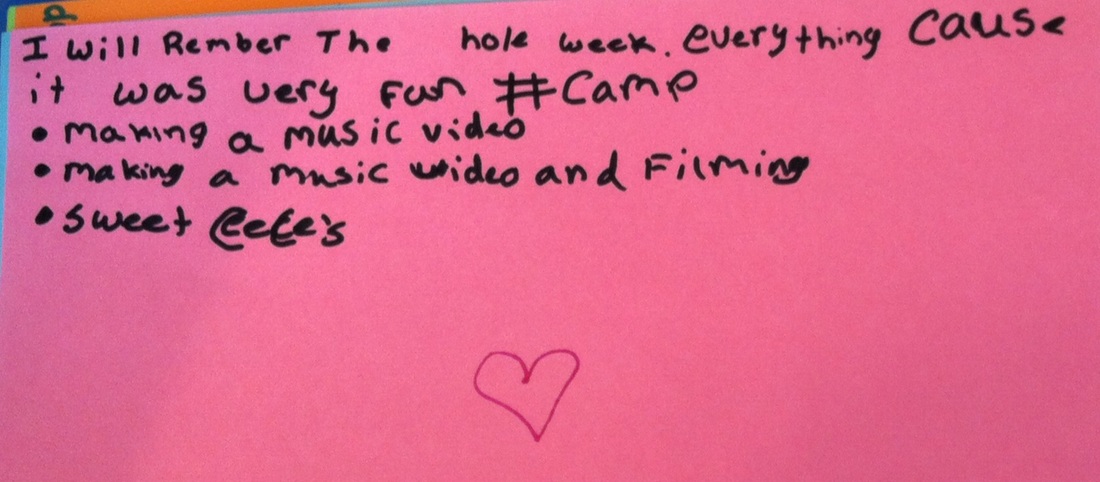 I will Rember The hole week. everything cause
it was very fun #Camp
• making a music video
• making a music video and Filming
• Sweet